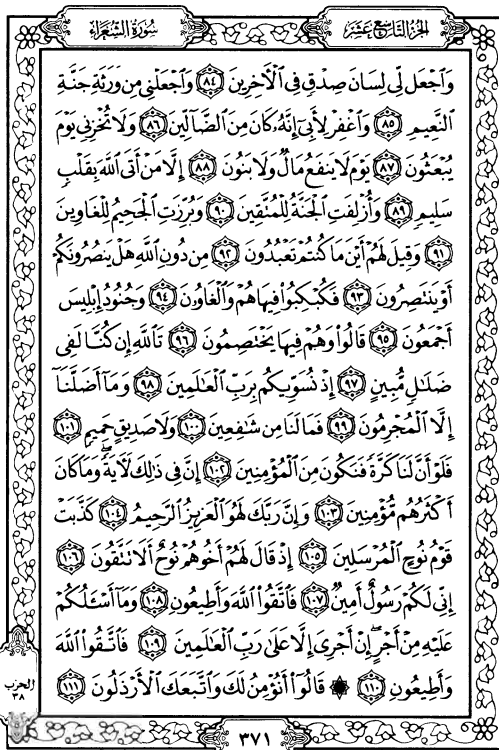 سُورَةُ الشُّعَرَاءِ
الجُزْءُ التَّاسِعَ عَشَرَ
وَٱجۡعَل لِّي لِسَانَ صِدۡقٖ فِي ٱلۡأٓخِرِينَ ٨٤ وَٱجۡعَلۡنِي مِن وَرَثَةِ جَنَّةِ
ٱلنَّعِيمِ ٨٥ وَٱغۡفِرۡ لِأَبِيٓ إِنَّهُۥ كَانَ مِنَ ٱلضَّآلِّينَ ٨٦ وَلَا تُخۡزِنِي يَوۡمَ
يُبۡعَثُونَ ٨٧ يَوۡمَ لَا يَنفَعُ مَالٞ وَلَا بَنُونَ ٨٨ إِلَّا مَنۡ أَتَى ٱللَّهَ بِقَلۡبٖ
سَلِيمٖ ٨٩ وَأُزۡلِفَتِ ٱلۡجَنَّةُ لِلۡمُتَّقِينَ ٩٠ وَبُرِّزَتِ ٱلۡجَحِيمُ لِلۡغَاوِينَ
٩١ وَقِيلَ لَهُمۡ أَيۡنَ مَا كُنتُمۡ تَعۡبُدُونَ ٩٢ مِن دُونِ ٱللَّهِ هَلۡ يَنصُرُونَكُمۡ
أَوۡ يَنتَصِرُونَ ٩٣ فَكُبۡكِبُواْ فِيهَا هُمۡ وَٱلۡغَاوُۥنَ ٩٤ وَجُنُودُ إِبۡلِيسَ
أَجۡمَعُونَ ٩٥ قَالُواْ وَهُمۡ فِيهَا يَخۡتَصِمُونَ ٩٦ تَٱللَّهِ إِن كُنَّا لَفِي
ضَلَٰلٖ مُّبِينٍ ٩٧ إِذۡ نُسَوِّيكُم بِرَبِّ ٱلۡعَٰلَمِينَ ٩٨ وَمَآ أَضَلَّنَآ
إِلَّا ٱلۡمُجۡرِمُونَ ٩٩ فَمَا لَنَا مِن شَٰفِعِينَ ١٠٠ وَلَا صَدِيقٍ حَمِيمٖ ١٠١
فَلَوۡ أَنَّ لَنَا كَرَّةٗ فَنَكُونَ مِنَ ٱلۡمُؤۡمِنِينَ ١٠٢ إِنَّ فِي ذَٰلِكَ لَأٓيَةٗۖ وَمَا كَانَ
أَكۡثَرُهُم مُّؤۡمِنِينَ ١٠٣ وَإِنَّ رَبَّكَ لَهُوَ ٱلۡعَزِيزُ ٱلرَّحِيمُ ١٠٤ كَذَّبَتۡ
قَوۡمُ نُوحٍ ٱلۡمُرۡسَلِينَ ١٠٥ إِذۡ قَالَ لَهُمۡ أَخُوهُمۡ نُوحٌ أَلَا تَتَّقُونَ ١٠٦
إِنِّي لَكُمۡ رَسُولٌ أَمِينٞ ١٠٧ فَٱتَّقُواْ ٱللَّهَ وَأَطِيعُونِ ١٠٨ وَمَآ أَسۡـَٔلُكُمۡ
عَلَيۡهِ مِنۡ أَجۡرٍۖ إِنۡ أَجۡرِيَ إِلَّا عَلَىٰ رَبِّ ٱلۡعَٰلَمِينَ ١٠٩ فَٱتَّقُواْ ٱللَّهَ
وَأَطِيعُونِ ١١٠ ۞ قَالُوٓاْ أَنُؤۡمِنُ لَكَ وَٱتَّبَعَكَ ٱلۡأَرۡذَلُونَ ١١١
الحزب
٣٨
٣٧١